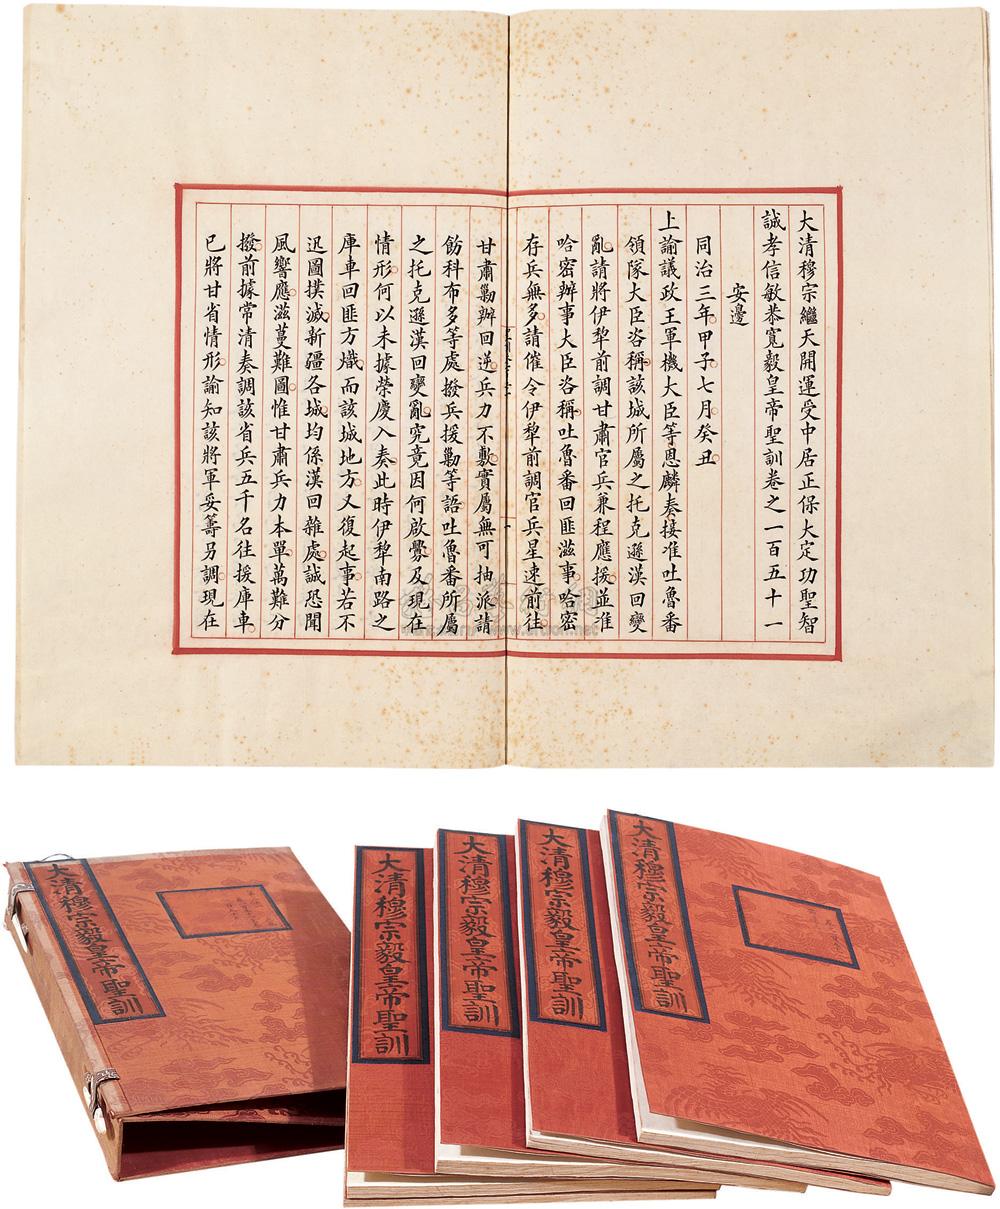 大清穆宗繼天開運受中居正保大定功聖智
誠孝信敏恭寬毅皇帝聖訓卷之一百五十一
安邊
同治三年甲子七月癸丑
上諭議政王軍機大臣等恩麟奏接准吐魯番
領隊大臣咨稱該城所屬之托克遜漢回變
亂請將伊犂前調甘肅官兵兼程應援並准
哈密辦事大臣咨稱吐魯番回匪滋事哈密
存兵無多請催令伊犂前調官兵星速前往
甘肅勦辦回逆兵力不敷實屬無可抽派請
飭科布多等處撥兵援勦等語吐魯番所屬
之托克遜漢回變亂究竟因何啟釁及現在
情形何以未據榮慶入奏此時伊犂南路之
庫車回匪方熾而該城地方又復起事若不
迅圖撲滅新疆各城均係漢回雜處誠恐聞
風響應滋蔓難圖惟甘肅兵力本單萬難分
撥前據常清奏調該省兵五千名往援庫車
已將甘省情形諭知該將軍妥籌另調現在
大清穆宗毅皇帝聖訓
大清穆宗毅皇帝聖訓
大清穆宗毅皇帝聖訓
大清穆宗毅皇帝聖訓
大清穆宗毅皇帝聖訓